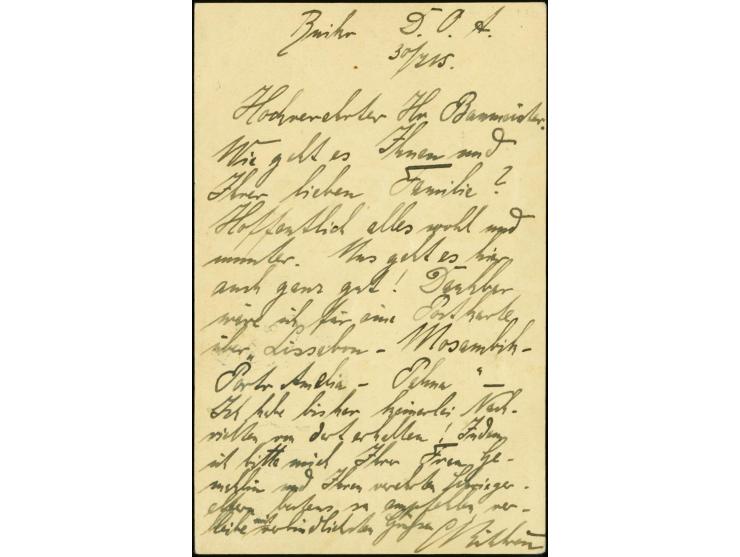 D. O. A.
30/7 15.
Hochverehrter Hr. Baumeister.
Wie geht es Ihnen und
Ihrer lieben Familie?
Hoffentlich alles wohl und
munter. Uns geht es hier
auch ganz gut! Dankbar
wäre ich für eine Postkarte
über „Lissabon – Mosambik –
Porto Amelia – Palma“ –
Ich habe bisher keinerlei Nach-
richten von dort erhalten! Indem
ich bitte mich Ihrer Frau Ge-
mahlin und Ihren verehrten Schwieger-
eltern bestens zu empfehlen ver-
bleibe mit verbindlichsten Grüßen